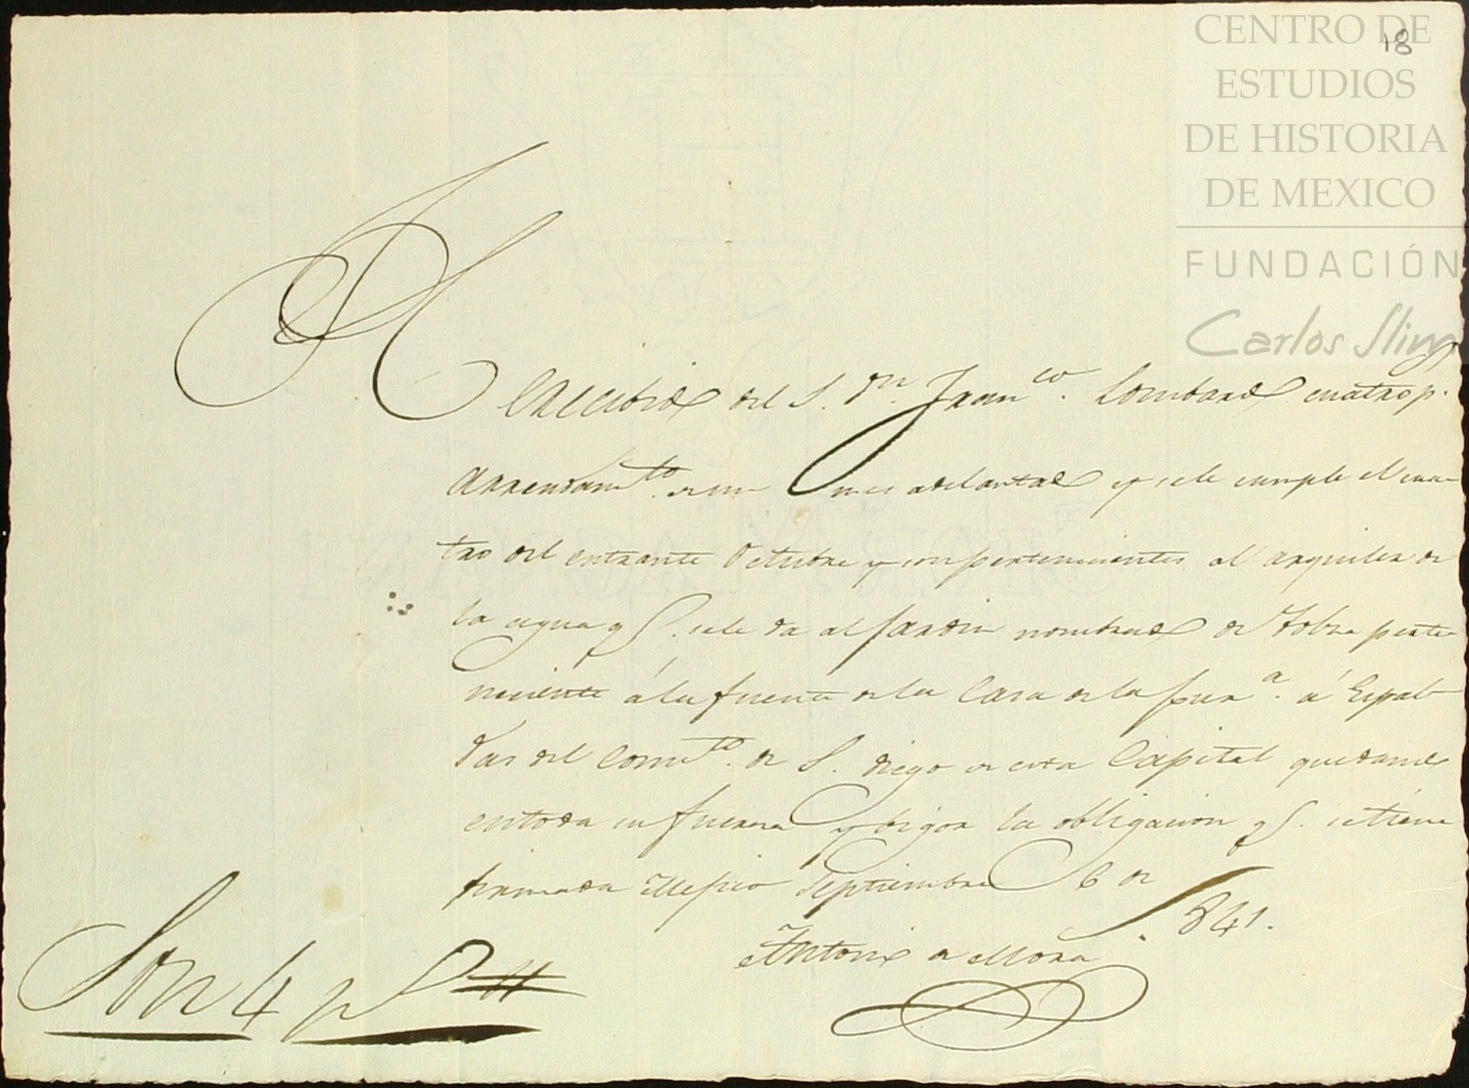 18
CENTRO DE
ESTUDIOS
DE HISTORIA
DE MEXICO
FUNDACIÓN
Carlos Slim
Rrecibido del S. Dn. Franco. Lombardo cuatro ps.
Arrendamto. de un mes adelantado y se le cumple el cua-
tro del entrante Octubre y son pertenecientes al arquiler de
la agua qe. se le da al Jardin nombrado de Tolsa perte-
neciente á la fuente de la Casa de la á Espal-
das del Convto. de S. diego de esta Capital quedando
en toda su fuerza y bigor la obligacion qe. se tiene
firmada Mejico Septiembre 6 de 1841.
Antonio de Mora
Son 4 ps